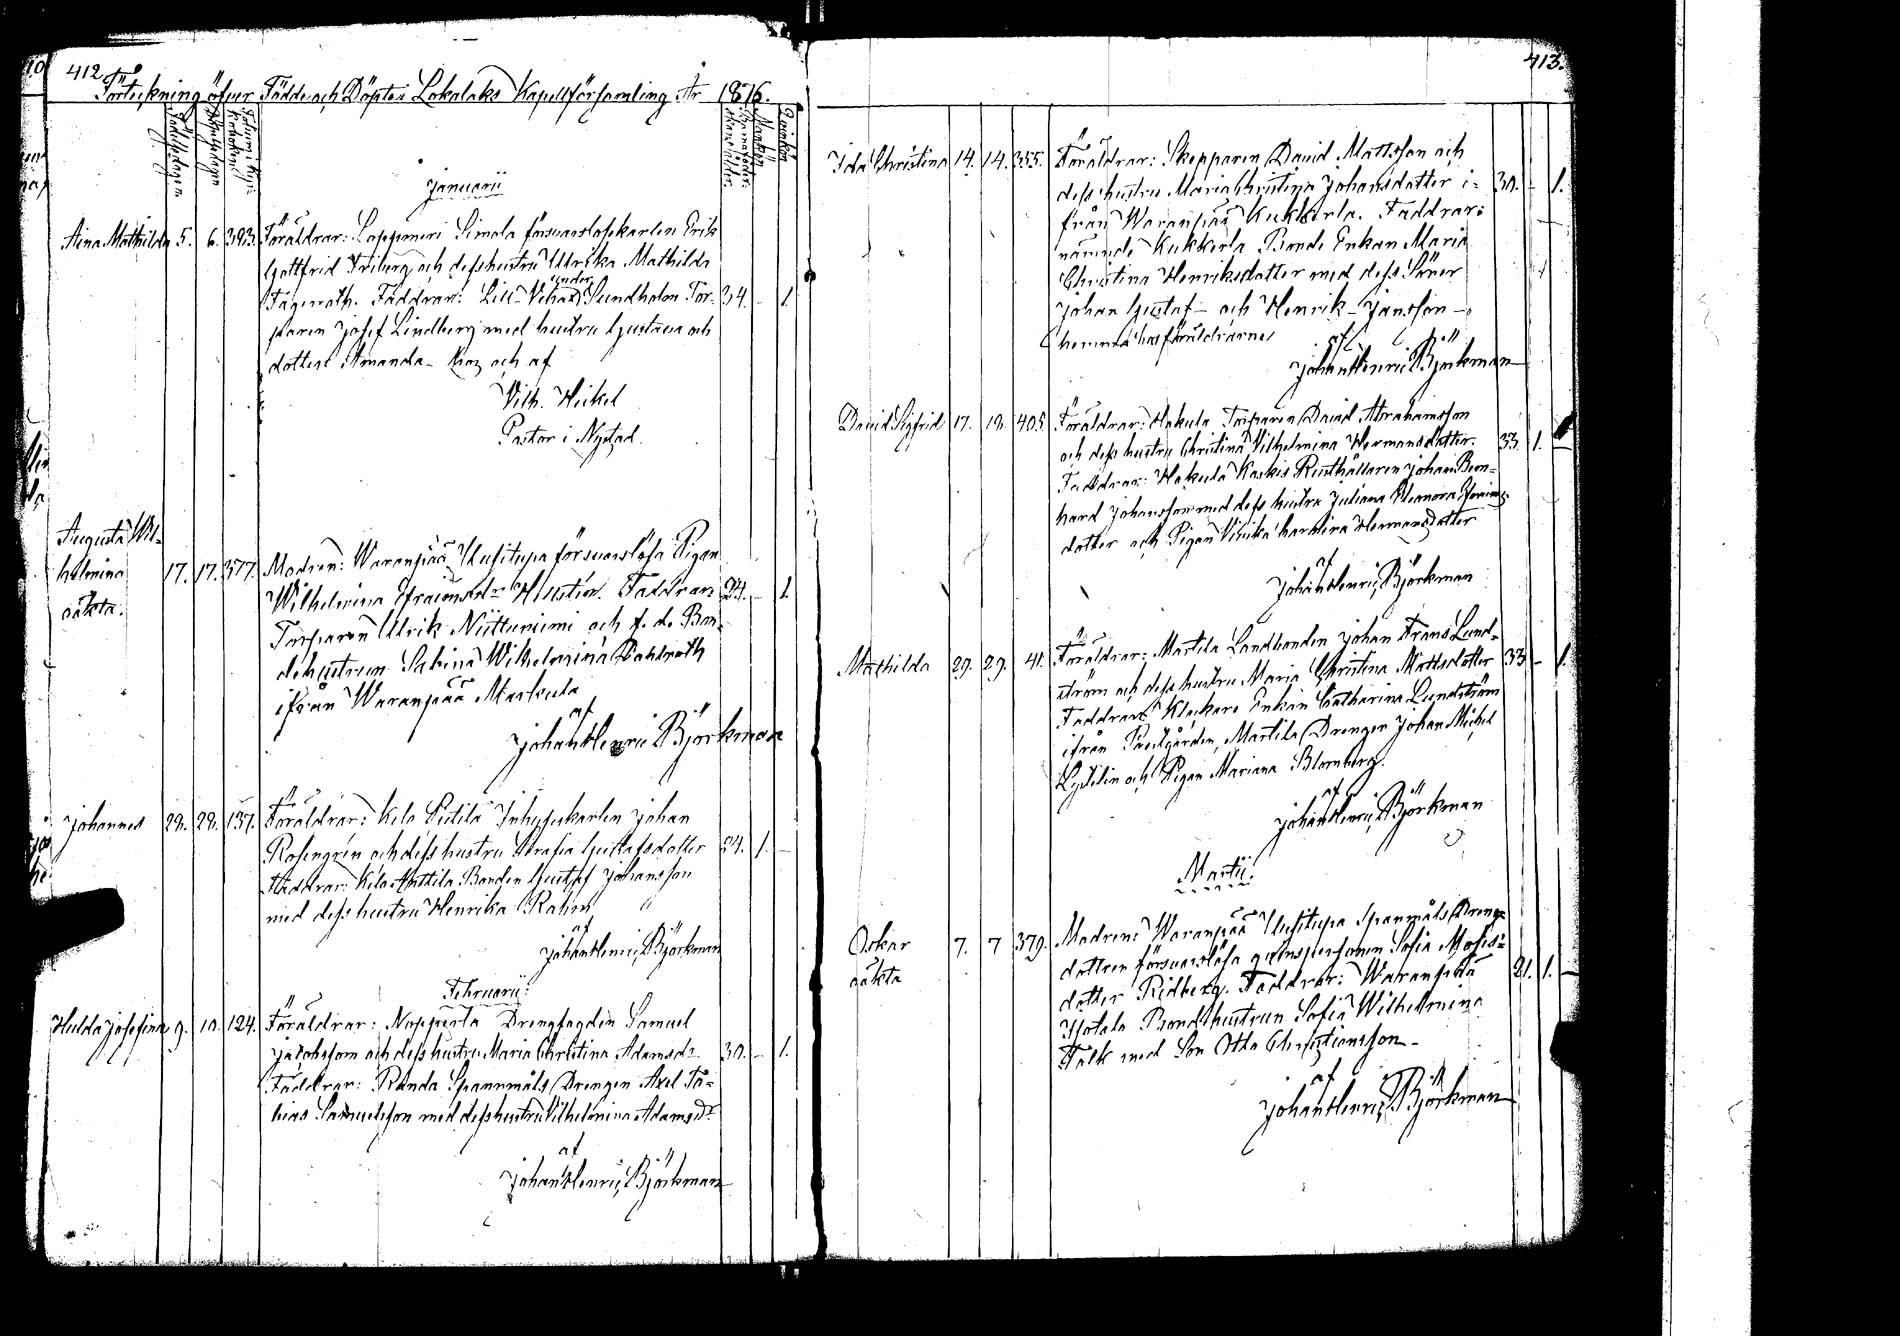 412
Förteckning öfver Födde och Döpte i Lokalaks Kapellförsamling År 1876.
Födelsedagen
Döpelsedagen
Folium i Kyrkoboken
Barnaföderskans ålder.
Mankön
Qvinkön
Januarii
Aina Mathilda 5. 6. 393. Föräldrar: Lappnemi Simola försvarslösekarlen Erik
Gottfrid Friberg och dess hustru Ulrika Mathilda
Fageroth. Faddrar: Lill Sundholm Tor- 34. - 1.
paren Josef Lindberg med hustru Gustava och
dotter Amanda och af
Vilh. Heikel
Pastor i Nystad.
Augusta Wil-
helmina 17. 17. 377. Modren: Waranpää Uusitupa försvarslösa Pigan
oäkta. Wilhelmina Efraimsdr Faddrar: 24. - 1.
Torparen Ulrik Niittuniemi och f. d. Bon-
dehustrun Sabina Wilhelmina Dahlroth
ifrån Waranpää Markula
af
Johan Henric Björkman
Johannes 28. 28. 137. Föräldrar: Kilo Sutila Inhysekarlen Johan
Rosengrén och dess hustru Serafia Gustafsdotter 24. 1. -
Faddrar: Kilo Anttila Bonden Gustaf Johansson
med dess hustru Henrika
af
Johan Henric Björkman
Februarii:
Hulda Josefina 9. 10. 124. Föräldrar: Nopperla Drengfogden Samuel
Jacobsson och dess hustru Maria Christina Adamsdr 30. - 1.
Faddrar: Randa Spannmåls Drengen Axel To-
bias Samuelsson med dess hustru Vilhelmina Adamsdr
af
Johan Henric Björkman
413.
Ida Christina 14. 14. 355. Föräldrar: Skepparen David Mattsson och
dess hustru Maria Christina Johansdotter i- 30. - 1.
från Waranpää Kukkerla. Faddrar:
nämnde Kukkerla Bonde Enkan Maria
Christina Henriksdotter med dess Söner
Johan Gustaf - och Henrik - Jansson -
hemma hos föräldrarne
af
Johan Henric Björkman
David Sigfrid 17. 18. 405. Föräldrar: Hakula Torparen David Abrahamsson
och dess hustru Christina Vilhelmina Hermansdotter. 33. 1. -
Faddrar: Hakula Kaskis Rusthållaren Johan Bern-
hard Johansson med dess hustru Juliana Eleonora
dotter och Pigan Ulrika Karolina Hermansdotter
af
Johan Henric Björkman
Mathilda 29. 29. 41. Föräldrar: Martila Landbonden Johan Frans Lund-
ström och dess hustru Maria Christina Mattsdotter 33 - 1.
Faddrar: Klockare Enkan Catharina Lundström
ifrån Prestgården, Martila Drengen Johan Michel
Lydelin och Pigan Mariana Blomberg.
af
Johan Henric Björkman
Martii.
Oskar 7. 7 379. Modren: Waranpää Uusitupa Spanmåls Dreng-
oäkta dottren försvarslösa qvinspersonen Sofia Moses-
dotter Ridberg. Faddrar: Waranpää 21. 1. -
Ylotalo Bondhustrun Sofia Wilhelmina
Falk med Son Otto Christiansson -
af
Johan Henric Björkman